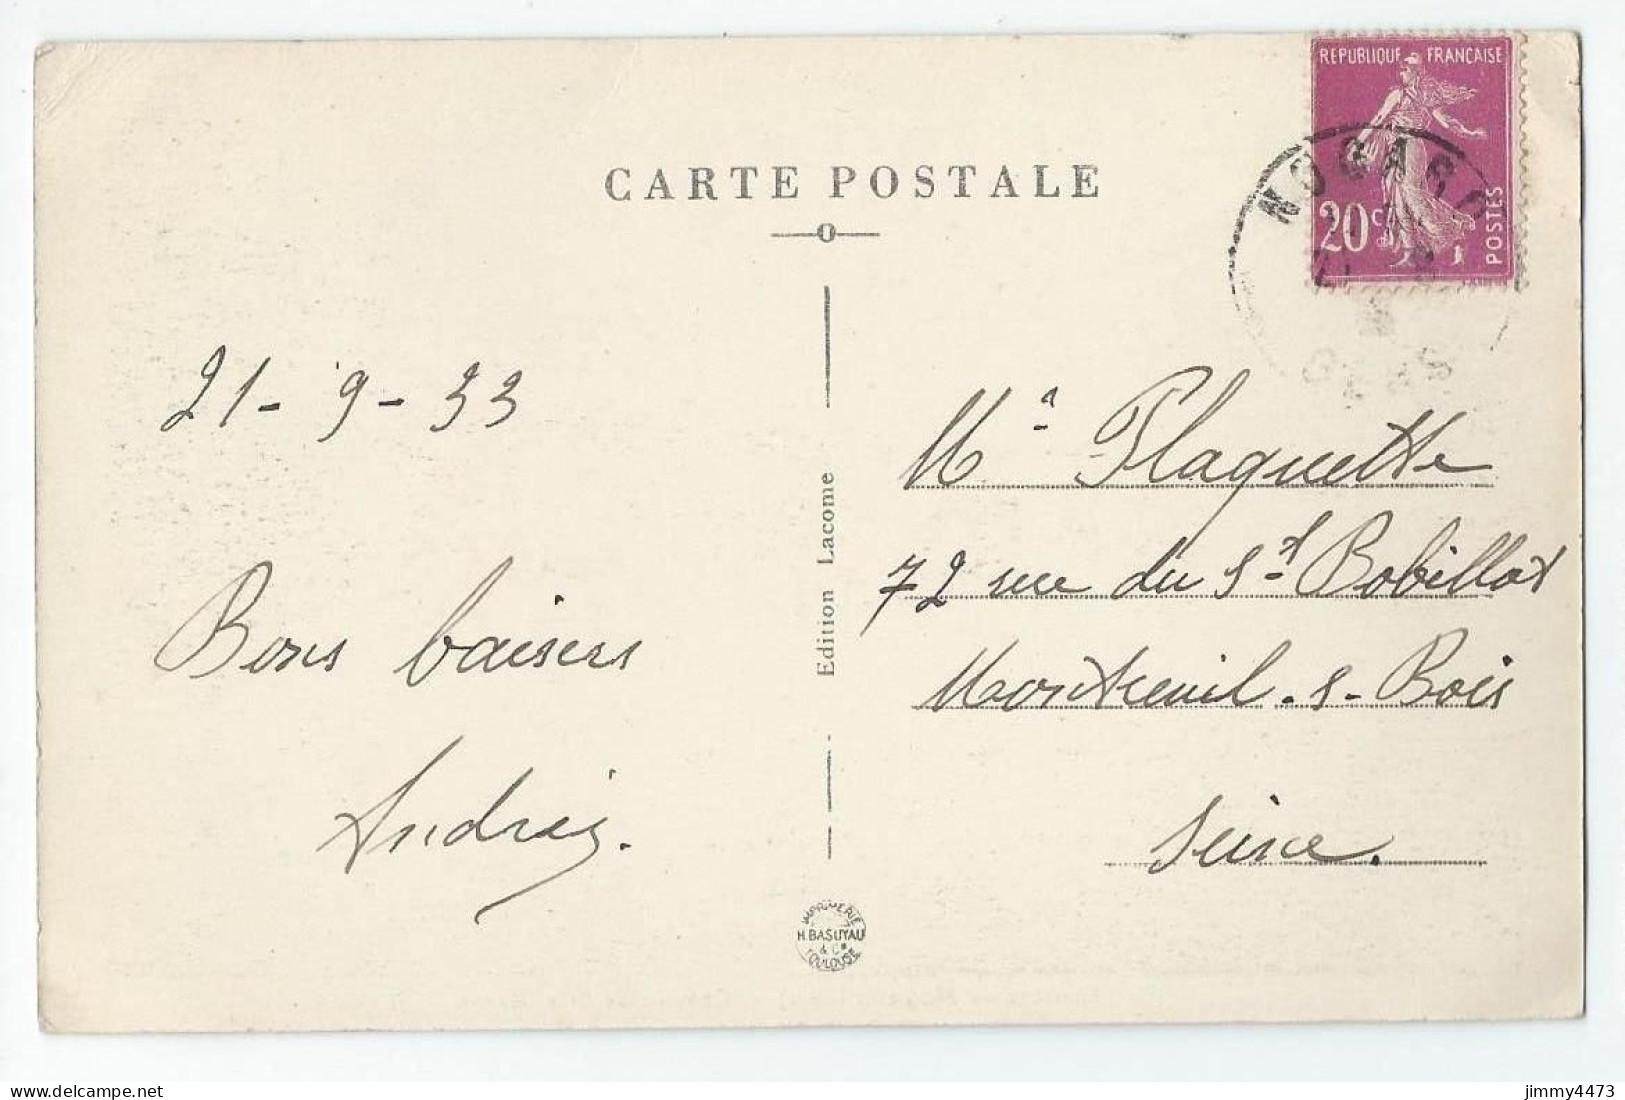 REPUBLIQUE FRANÇAISE
20c
POSTES
NOGARO
GERS
CARTE POSTALE
21-9-33
Bons baisers
Edition Lacome
Plaquette
72 rue du St Bobillot
Montreuil-s-Bois
Seine.
IMPRIMERIE
H. BASUYAU
& Cie
TOULOUSE
jimmy4473